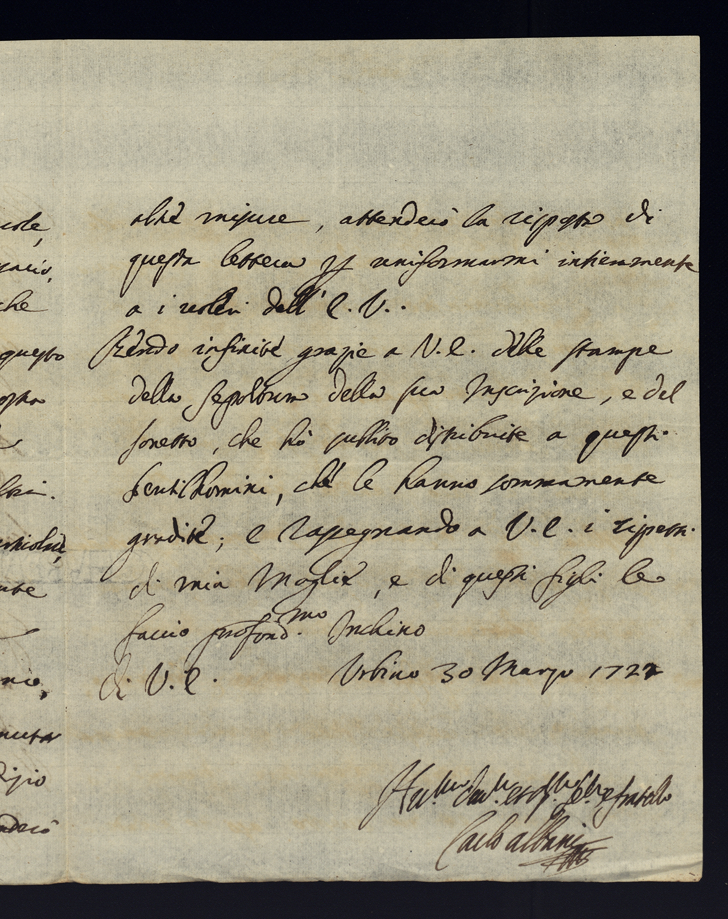 altre misure, attenderò la risposta di
questa lettera p uniformarmi intieramente
a i voleri dell' E. V..
Rendo infinite grazie a V. E. delle stampe
della sepoltura della sua Inscrizione, e del
sonetto, che hò subito distribuite a questi
Gentilhomini, che le hanno sommamente
gradite; e rassegnando a V. E. i rispetti
di mia Moglie, e di questi figli le
faccio profond.mo Inchino
di V. E. Urbino 30 Marzo 1722
fratello
Carlo Albani
che
questo